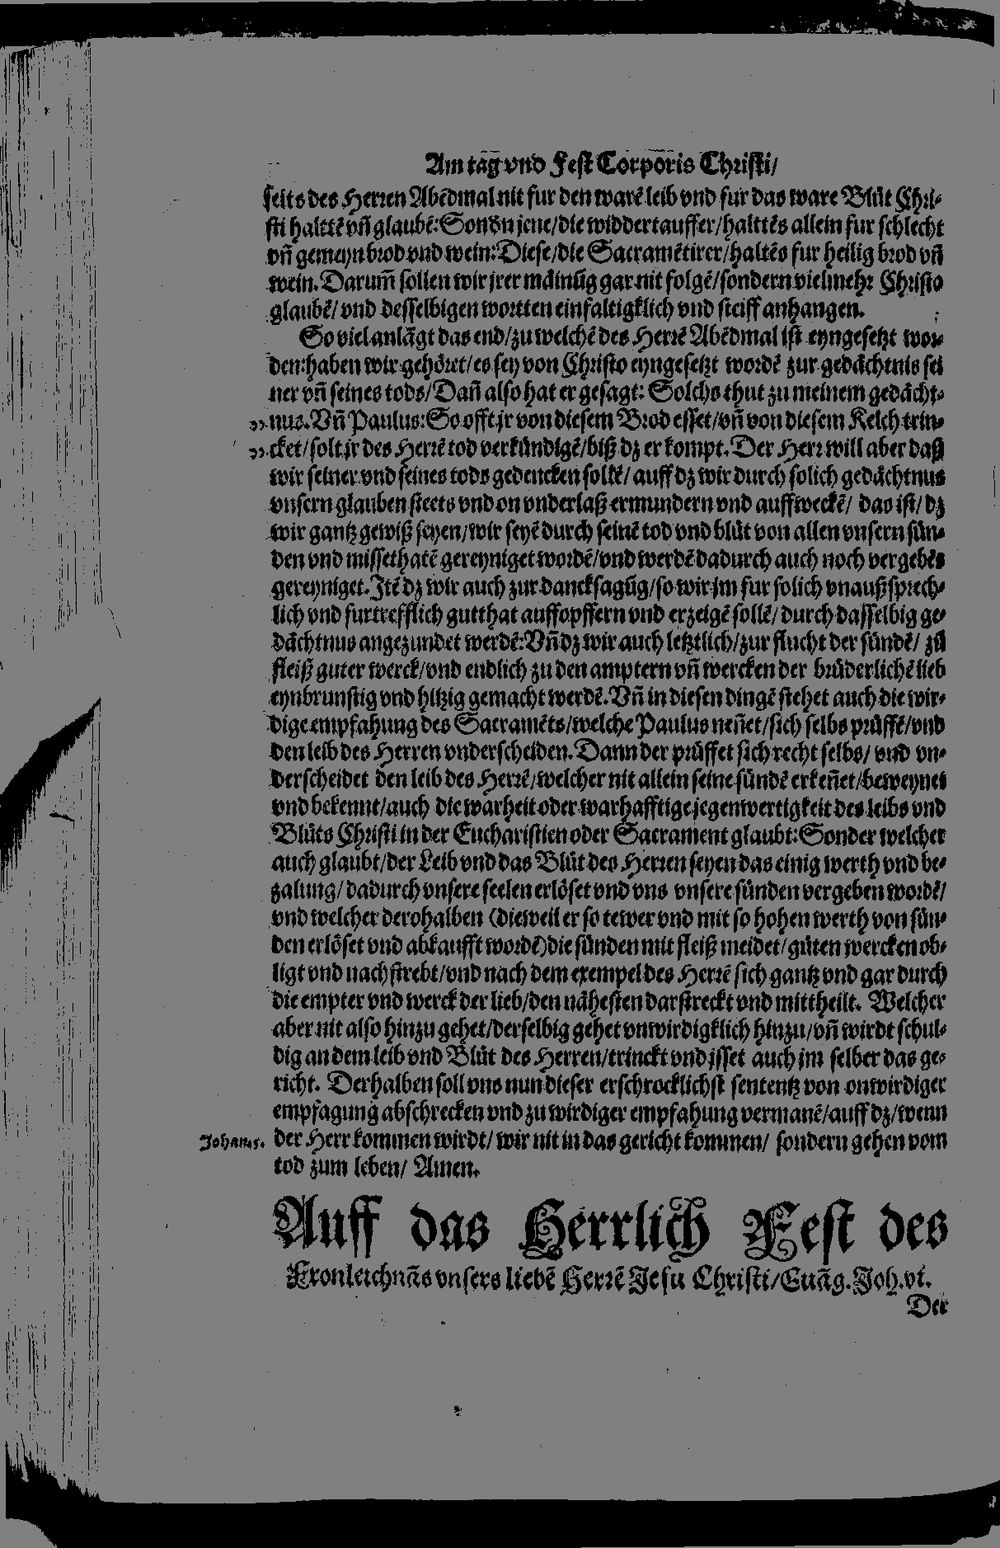 Am tag vnd Fest Corporis Christi/
seits des Herren Abēdmal nit fur den warē leib vnd fur das ware Blůt Chri-
sti halttē vñ glaubē: Sondn jene/die widdertauffer/halttēs allein fur schlecht
vñ gemeyn brod vnd wein: Diese/die Sacramētirer/haltēs fur heilig brod vñ
wein. Darum̄ sollen wir jrer mäinūg gar nit folgē/sondern vielmehr Christo
glaubē/ vnd desselbigen wortten einfaltigklich vnd steiff anhangen.
So viel anlāgt das end/zu welchē des Herrē Abēdmal ist eyngesetzt wor-
den: haben wir gehöret/es sey von Christo eyngesetzt wordē zur gedächtnis sei
ner vñ seines tods/ Dañ also hat er gesagt: Solchs thut zu meinem gedächt-
nus. Vñ Paulus: So offt jr von diesem Brod esset/vñ von diesem Kelch trin-
cket/solt jr des Herrē tod verkündigē/biß dz er kompt. Der Herr will aber daß
wir seiner vnd seines tods gedencken sollē/ auff dz wir durch solich gedächtnus
vnsern glauben steets vnd on vnderlaß ermundern vnd auffweckē/ das ist/ dz
wir gantz gewiß seyen/wir seyē durch seinē tod vnd blůt von allen vnsern sün-
den vnd missethatē gereyniget wordē/vnd werdē dadurch auch noch vergebēs
gereyniget. Itē dz wir auch zur dancksagūg/so wir jm fur solich vnaußsprech-
lich vnd furtrefflich gutthat auffopffern vnd erzeigē sollē/ durch dasselbig ge-
dächtnus angezundet werdē: Vñ dz wir auch letztlich/zur flucht der sündē/ zů
fleiß guter werck/vnd endlich zu den amptern vñ wercken der brüderlichē lieb
eynbrunstig vnd hitzig gemacht werdē. Vñ in diesen dingē stehet auch die wir-
dige empfahung des Sacramēts/welche Paulus neñet/sich selbs prüffē/vnd
den leib des Herren vnderscheiden. Dann der prüffet sich recht selbs/ vnd vn-
derscheidet den leib des Herrē/welcher nit allein seine sündē erkeñet/beweynet
vnd bekennt/auch die warheit oder warhafftige jegenwertigkeit des leibs vnd
Blůts Christi in der Eucharistien oder Sacrament glaubt: Sonder welcher
auch glaubt/der Leib vnd das Blůt des Herren seyen das einig werth vnd be-
zalung/ dadurch vnsere seelen erlöset vnd vns vnsere sünden vergeben wordē/
vnd welcher derohalben (dieweil er so tewer vnd mit so hohen werth von sün-
den erlöset vnd abkaufft wordē) die sünden mit fleiß meidet/ gůten wercken ob-
ligt vnd nachstrebt/vnd nach dem exempel des Herrē sich gantz vnd gar durch
die empter vnd werck der lieb/den nähesten darstreckt vnd mittheilt. Welcher
aber nit also hinzu gehet/derselbig gehet vnwirdigklich hinzu/vñ wirdt schul-
dig an dem leib vnd Blůt des Herren/trinckt vnd jsset auch jm selber das ge-
richt. Derhalben soll vns nun dieser erschrocklichst sententz von onwirdiger
empfagung abschrecken vnd zu wirdiger empfahung vermanē/auff dz/wenn
Johan.5. der Herr kommen wirdt/ wir nit in das gericht kommen/ sondern gehen vom
tod zum leben/ Amen.
Auff das Herrlich Fest des
Fronleichnās vnsers liebē Herrē Jesu Christi/Euāg. Joh.vi.
Der